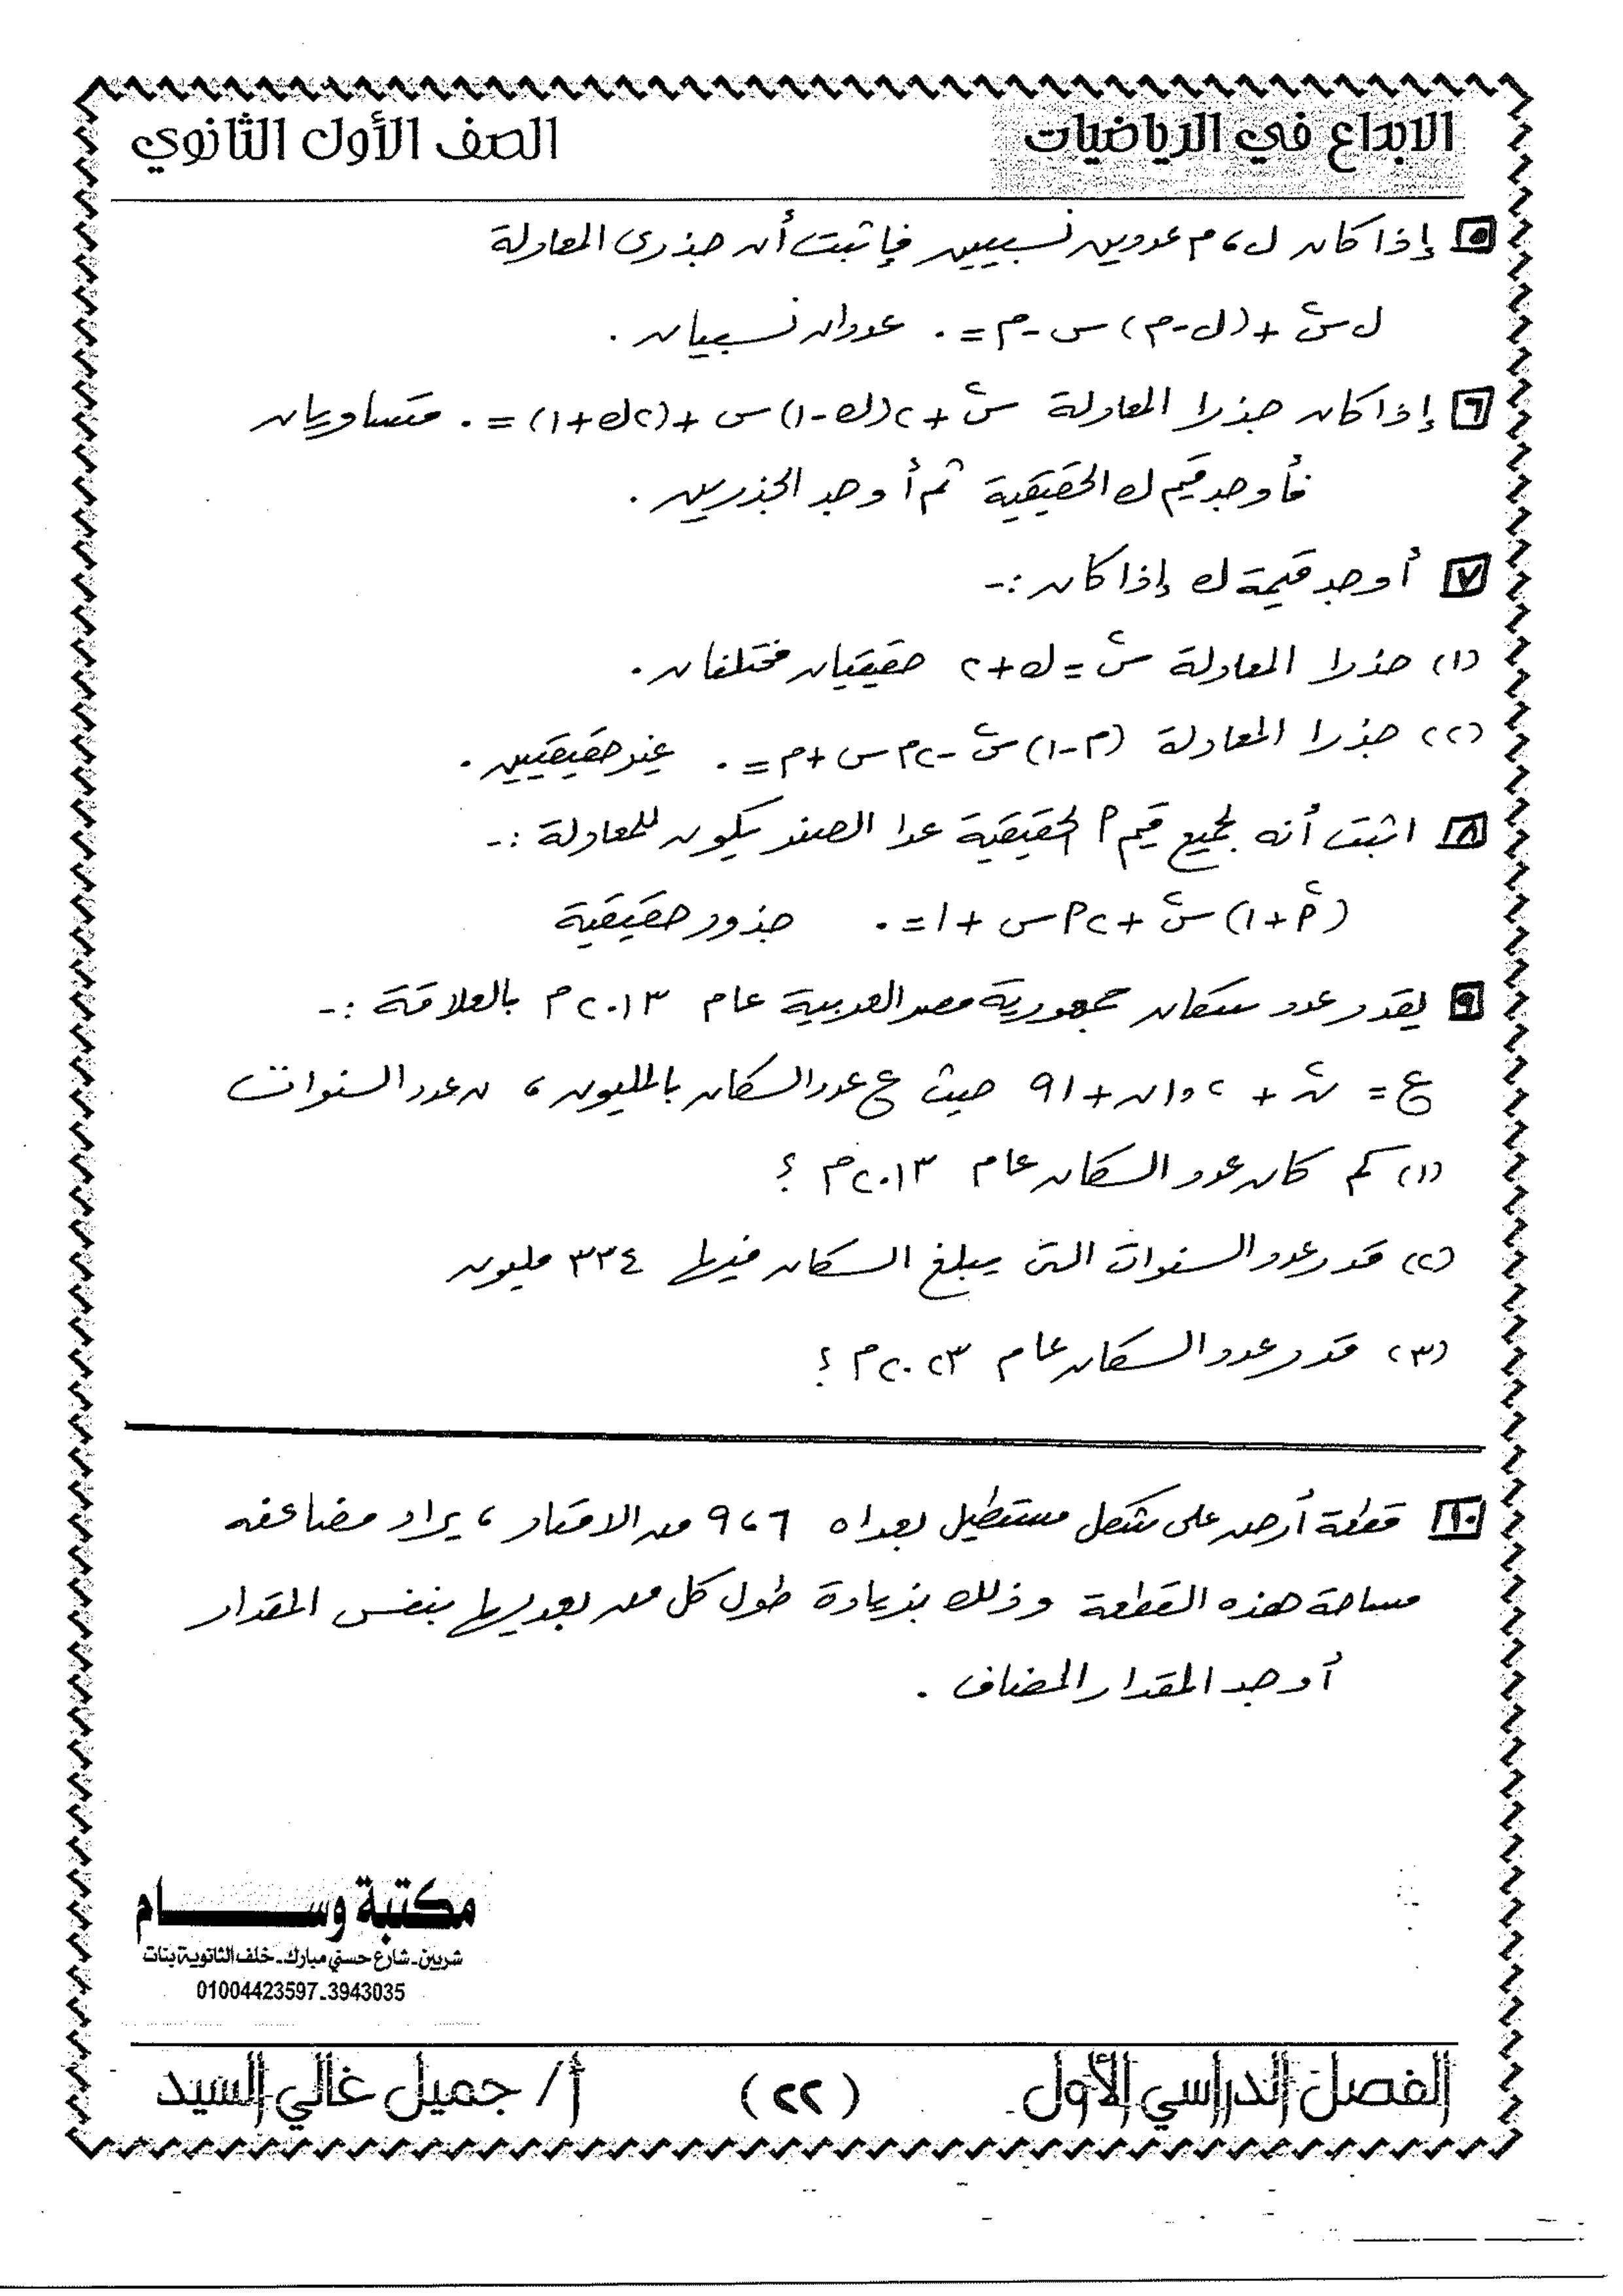 الابداع في الرياضيات
الصف الأول الثانوي
٥ إذا كان ل ، م عددين نسبيين فإثبت أن جذرى المعادلة
ل س٢ + (ل - م) س - م = ٠ عددان نسبيان .
٦ إذا كان جذرا المعادلة س٢ + ٢(ك - ١) س + (٢ك + ١) = ٠ متساويان
فأوجد قيم ك الحقيقية ثم أوجد الجذرين .
٧ أوجد قيمة ك إذا كان :-
(١) جذرا المعادلة س٢ = ك + ٢ حقيقيان مختلفان .
(٢) جذرا المعادلة (م - ١) س٢ - ٢م س + م = ٠ غير حقيقيين .
٨ اثبت أنه لجميع قيم أ الحقيقية عدا الصفر يكون للمعادلة :-
(أ٢ + ١) س٢ + ٢أ س + ١ = ٠ جذور حقيقية
٩ يقدر عدد سكان جمهورية مصر العربية عام ٢٠١٣ م بالعلاقة :-
ع = ن٢ + ١,٢ ن + ٩١ حيث ع عدد السكان بالمليون ، ن عدد السنوات
(١) كم كان عدد السكان عام ٢٠١٣ م ؟
(٢) قدر عدد السنوات التى يبلغ السكان فيها ٣٣٤ مليون
(٣) قدر عدد السكان عام ٢٠٢٣ م ؟
١٠ قطعة أرض على شكل مستطيل بعداه ٦ ، ٩ من الامتار ، يراد مضاعفه
مساحة هذه القطعة وذلك بزيادة طول كل من بعديها بنفس المقدار
أوجد المقدار المضاف .
مكتبة وســـــام
شربين - شارع حسني مبارك - خلف الثانوية بنات
01004423597-3943035
الفصل الدراسي الأول
(٢٢)
أ/ جميل غالي السيد